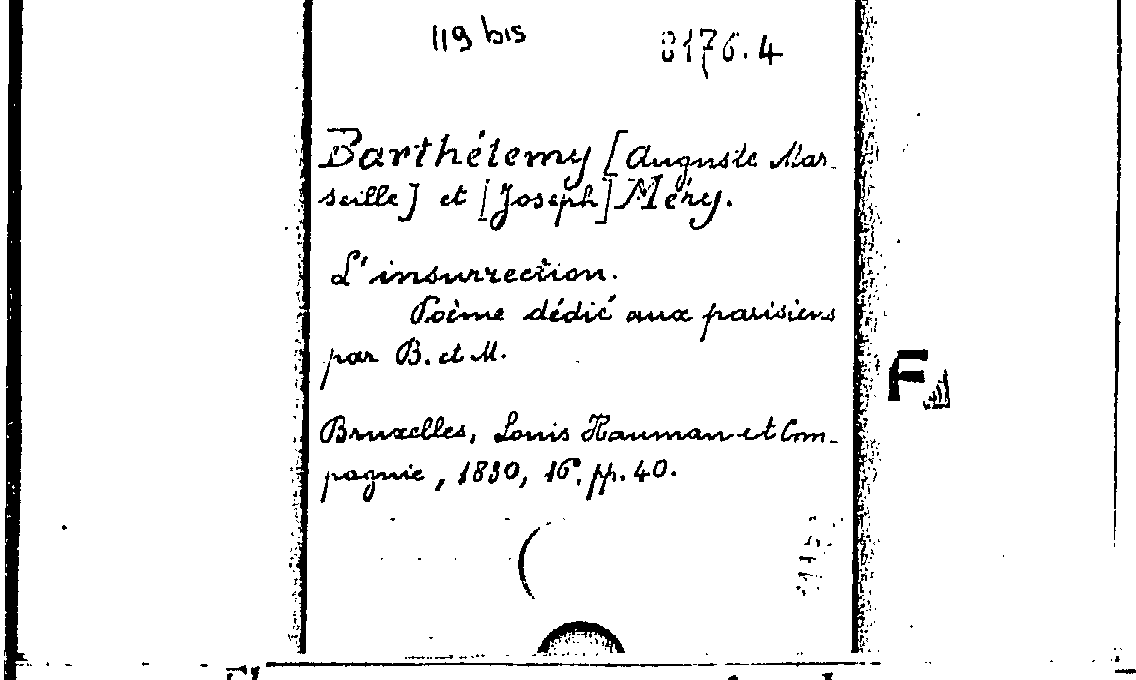 119 bis
8176.4
Barthélemy [Auguste Mar-
seille] et [Joseph] Méry.
L'insurrection.
Poème dédié aux parisiens
par B. et M.
Bruxelles, Louis Hauman et Com-
pagnie, 1830, 16°, pp. 40.
F